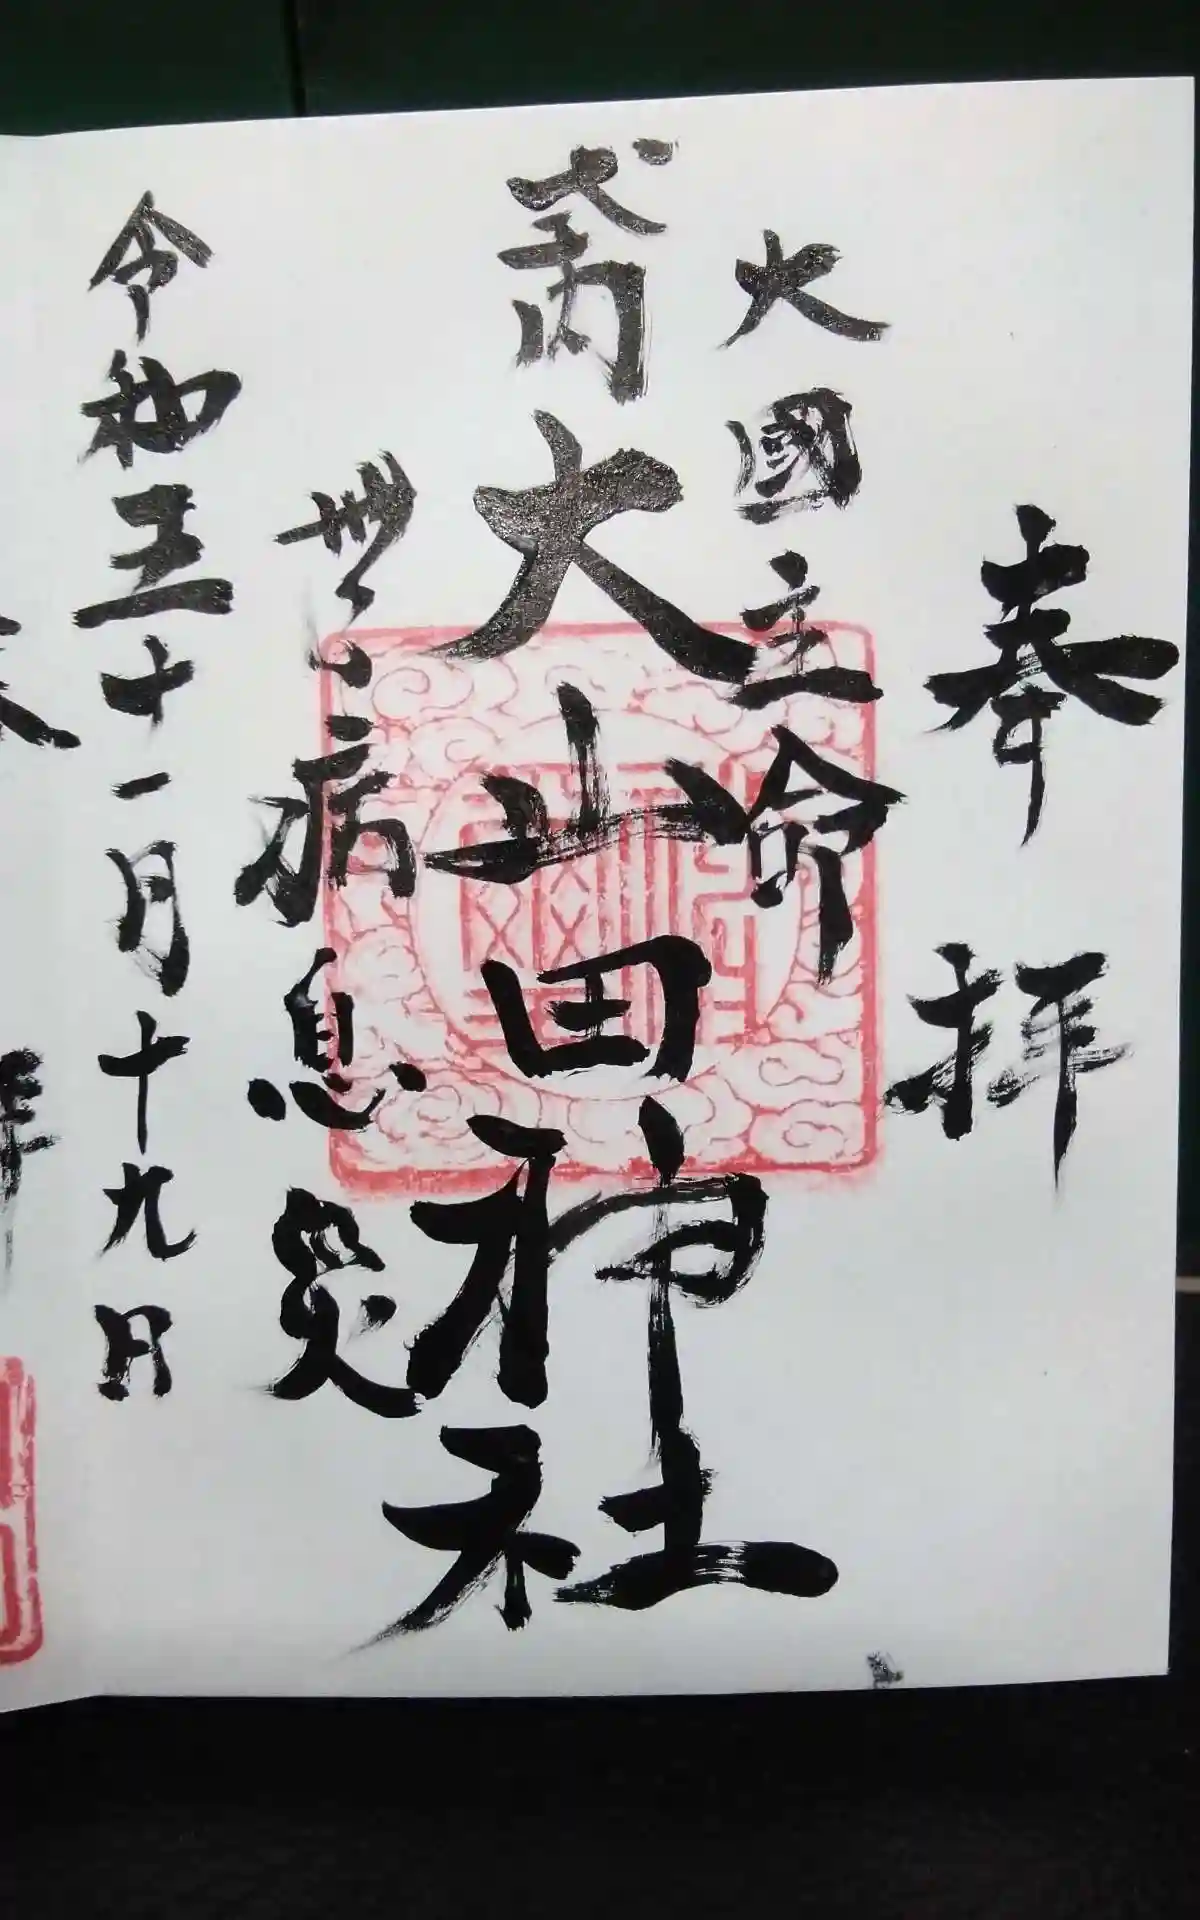 奉拝
大國主命
式内大山田神社
無病息災
令和五十一月十九日